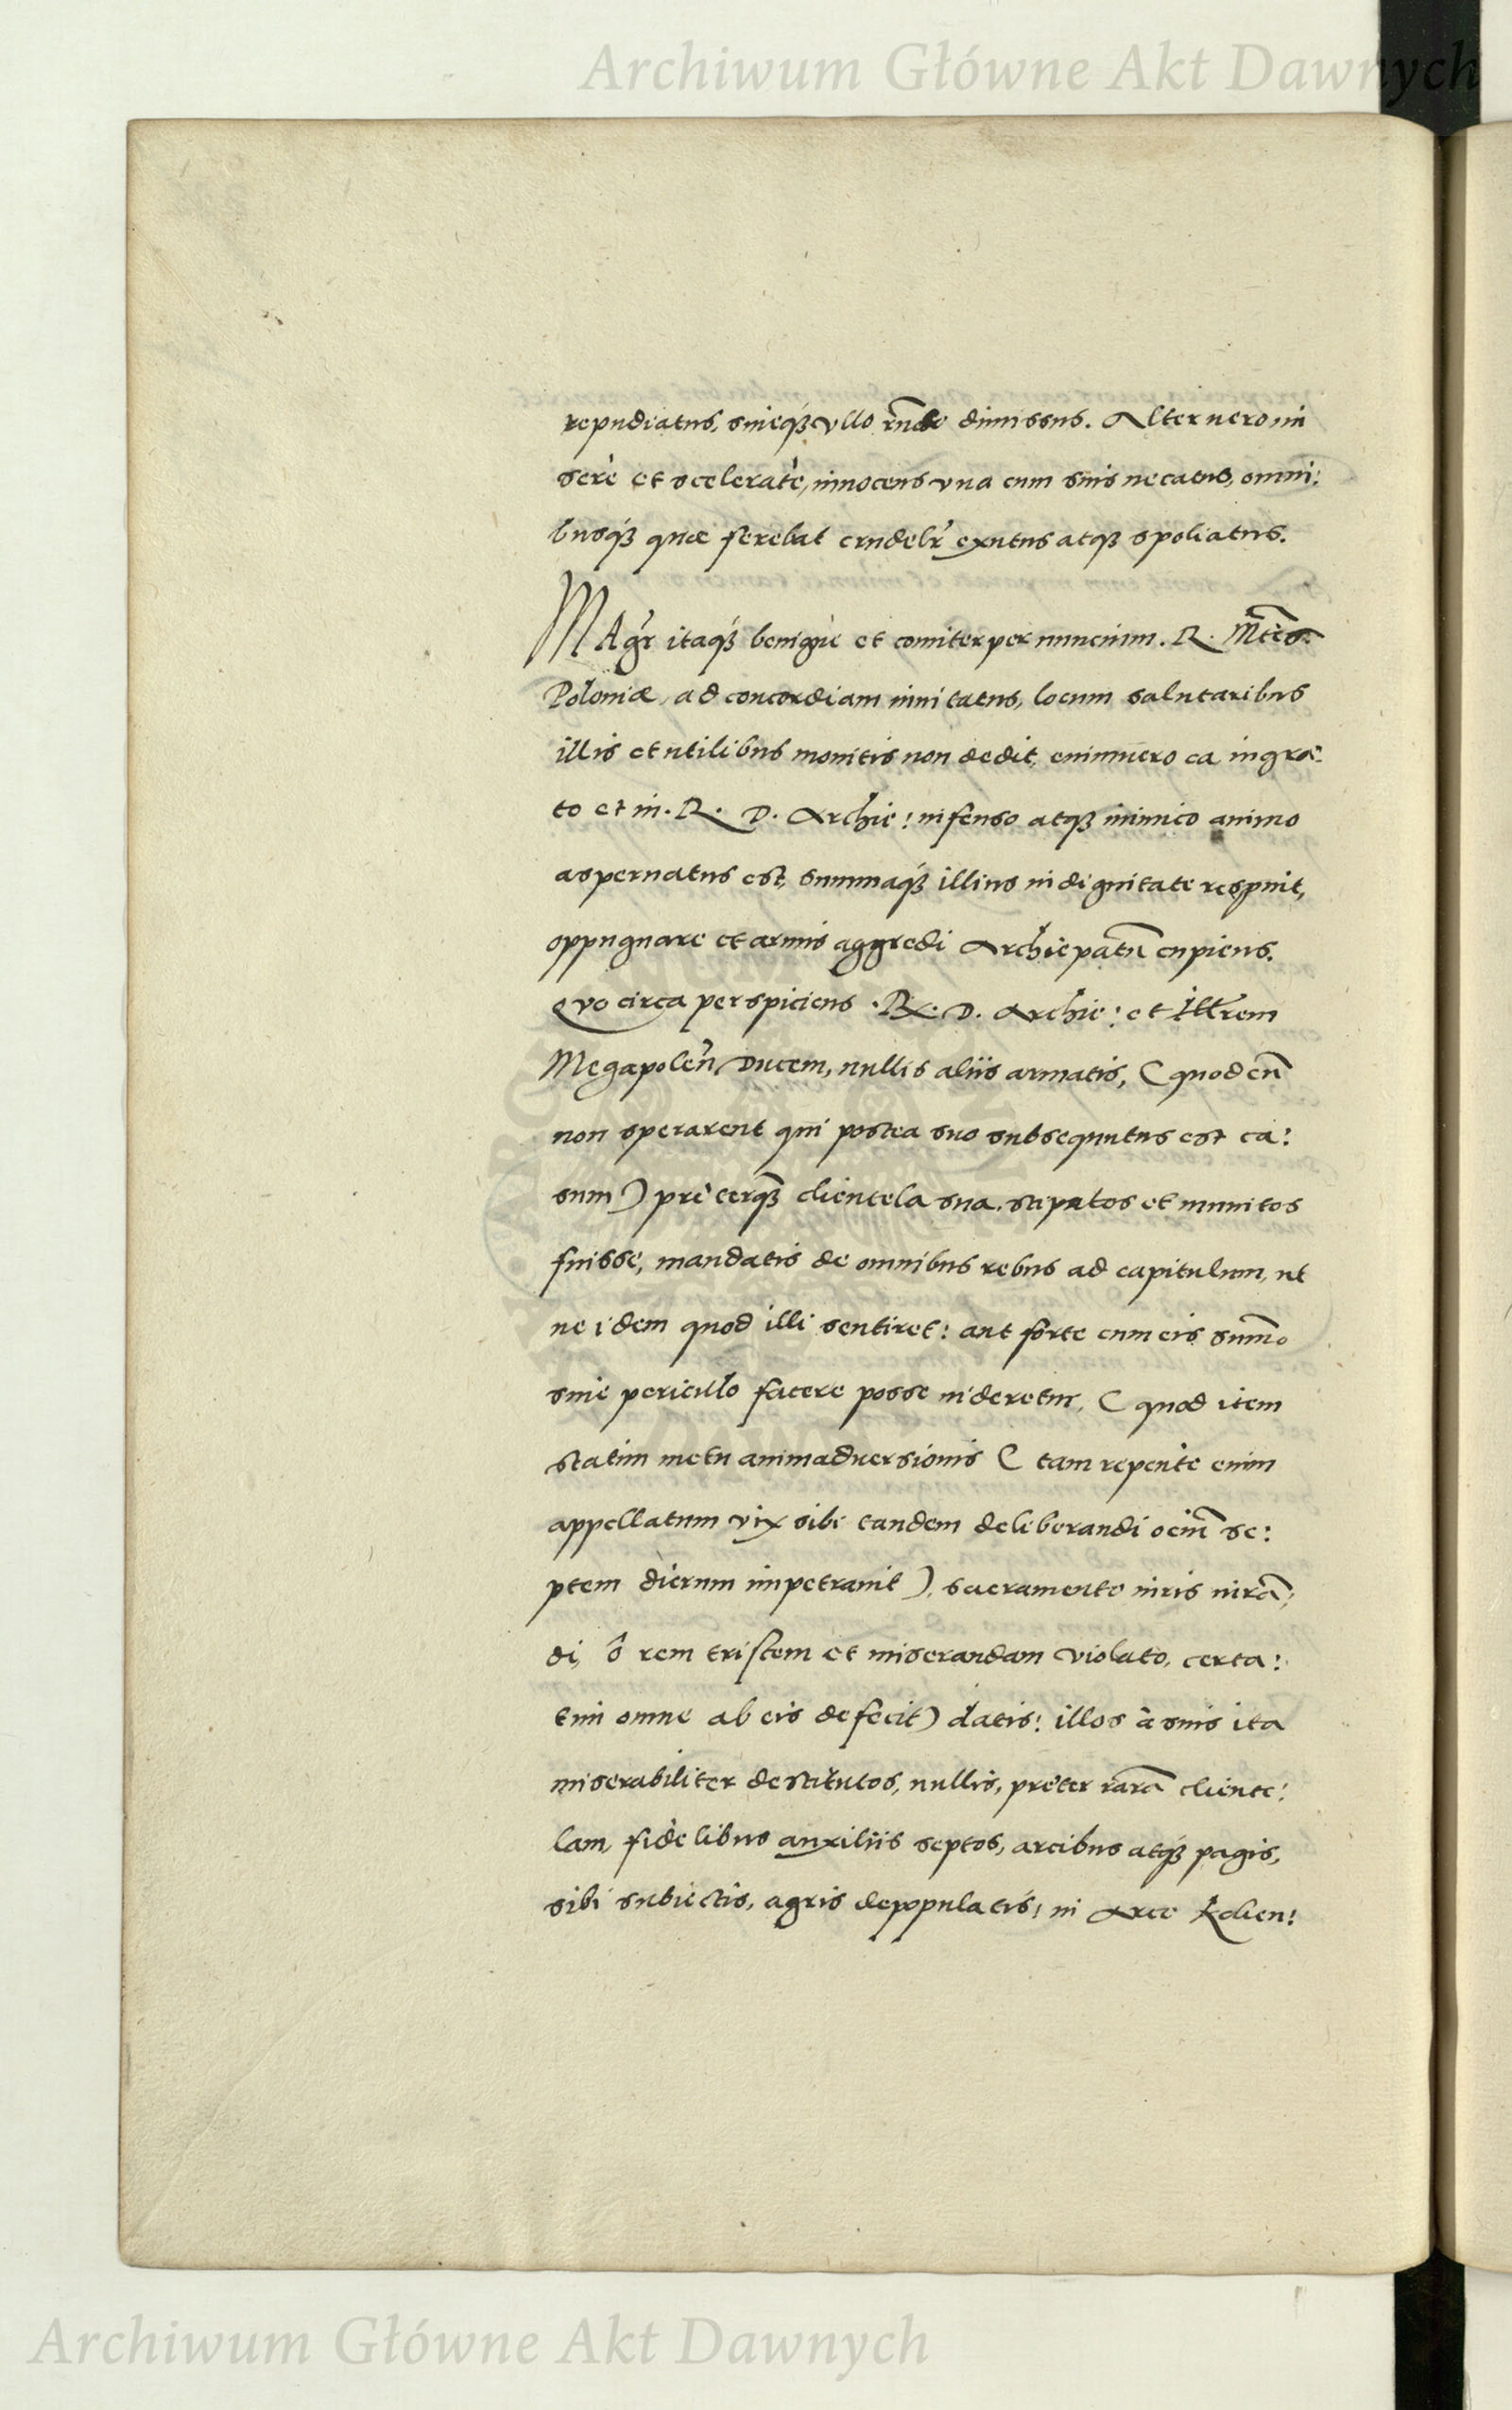 Archiwum Główne Akt Dawnych
repudiatus, sineq́ȝ vllo dimissus. Alter uero mi
serè et sceleratè, innocens vna cum suis necatus, omni:
busq́ȝ quæ ferebat crudelr̃ exutus atqȝ spoliatus.
MAgr̃ itaq́ȝ benignè et comiter per nuncium. R. Mtis.
Poloniæ, ad concordiam inuitatus, locum salutaribus
illis et utilibus monitis non dedit, enimuero ea ingra:
to et in. R. D. Archie: infenso atqȝ inimico animo
aspernatus est, summaq́ȝ illius indignitate respuit,
oppugnare et armis aggredi Archiepatū cupiens.
Quo circa perspiciens .R. D. Archie: et Illrem
Megapoleñ Ducem, nullis aliis armatis, (quod eñ
non sperarent qui postea suo subsequutus est ca:
sum) preterqȝ clientela sua. stipatos et munitos
fuisse, mandatis de omnibus rebus ad capitulum, ut
ne idem quod illi sentiret: aut forte cum eis summo
sine periculo facere posse uideretur, (quod item
statim metu animaduersionis (tam repentè enim
appellatum vix sibi tandem deliberandi ociū se:
ptem dierum impetrauit), sacramento iuris iurã:
di, ô rem tristem et miserandam violato, certa:
tim omne ab eis defecit) datis: illos à suis ita
miserabiliter destitutos, nullis, preter rarã cliente:
lam, fidelibus auxiliis septos, arcibus atq́ȝ pagis,
sibi subiectis, agris depopulatis, in Arce Kolien:
Archiwum Główne Akt Dawnych